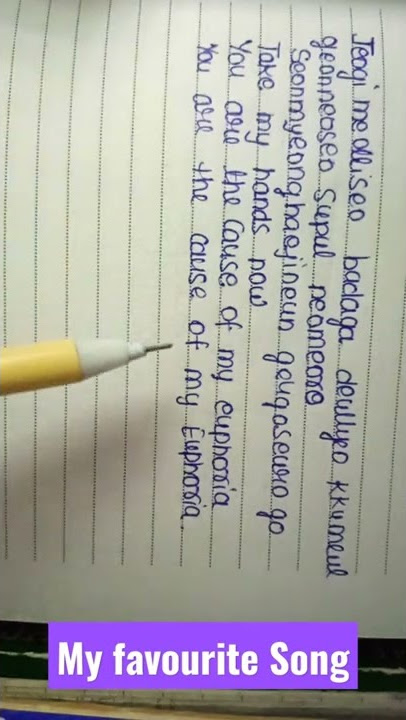 Jeogi meolliseo badaga deullyeo kkumeul
geonneoseo supul neomeoro
Seonmyeonghaejineun geugoseuro go
Take my hands now
You are the cause of my euphoria
You are the cause of my Euphoria.
My favourite Song